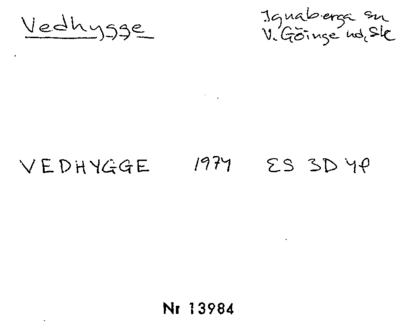 Vedhygge
Ignaberga sn
V. Göinge hd, Sk
VEDHYGGE 1974 ES 3D 4f
Nr 13984